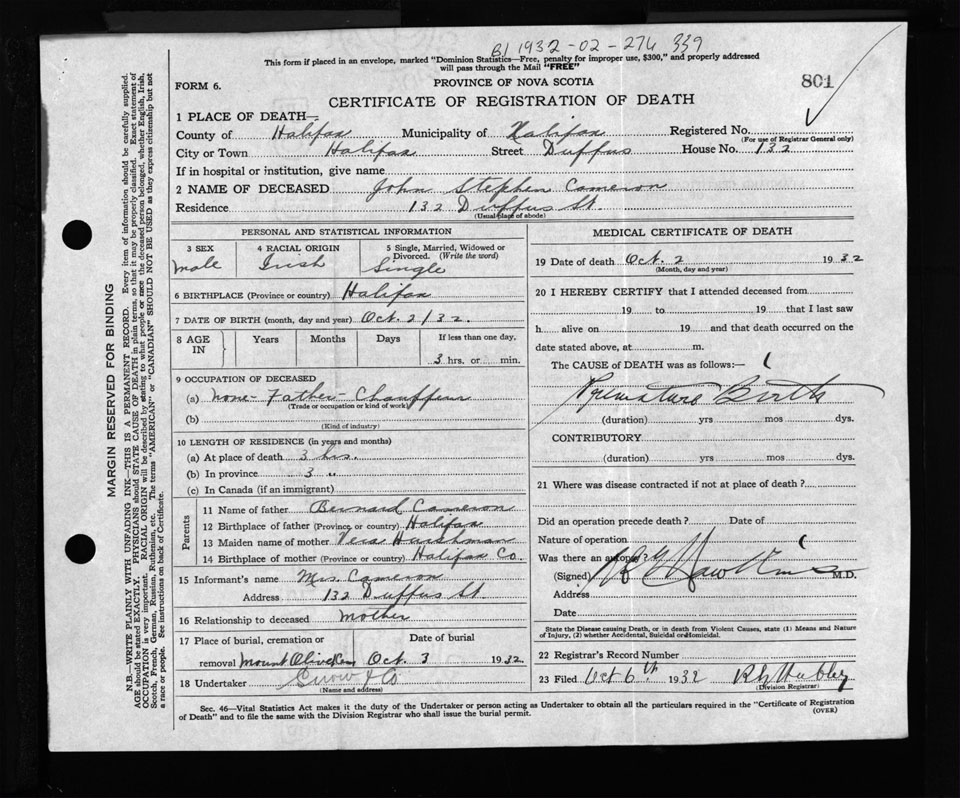 B1 1932-02-274 339
This form if placed in an envelope, marked "Dominion Statistics—Free, penalty for improper use, $300," and properly addressed
will pass through the Mail "FREE"
PROVINCE OF NOVA SCOTIA
FORM 6.
801
CERTIFICATE OF REGISTRATION OF DEATH
1 PLACE OF DEATH—
County of Halifax Municipality of Halifax Registered No.
(For use of Registrar General only)
City or Town Halifax Street Duffus House No. 132
If in hospital or institution, give name
2 NAME OF DECEASED John Stephen Cameron
Residence 132 Duffus St.
(Usual place of abode)
PERSONAL AND STATISTICAL INFORMATION
3 SEX 4 RACIAL ORIGIN 5 Single, Married, Widowed or
Divorced. (Write the word)
Male Irish Single
6 BIRTHPLACE (Province or country) Halifax
7 DATE OF BIRTH (month, day and year) Oct. 2/32.
8 AGE IN Years Months Days If less than one day.
3 hrs. or min.
9 OCCUPATION OF DECEASED
(a) none - Father - Chauffeur
(Trade or occupation or kind of work)
(b)
(Kind of industry)
10 LENGTH OF RESIDENCE (in years and months)
(a) At place of death 3 hrs.
(b) In province 3 "
(c) In Canada (if an immigrant)
Parents
11 Name of father Bernard Cameron
12 Birthplace of father (Province or country) Halifax
13 Maiden name of mother Vera
14 Birthplace of mother (Province or country) Halifax Co.
15 Informant's name Mrs. Cameron
Address 132 Duffus St
16 Relationship to deceased Mother
17 Place of burial, cremation or Date of burial
removal Mount Olivet Oct. 3 1932.
18 Undertaker Snow & Co
(Name and address)
MEDICAL CERTIFICATE OF DEATH
19 Date of death Oct. 2 1932
(Month, day and year)
20 I HEREBY CERTIFY that I attended deceased from
19 to 19 that I last saw
h alive on 19 and that death occurred on the
date stated above, at m.
The CAUSE OF DEATH was as follows:—
Premature Birth
(duration) yrs mos dys.
CONTRIBUTORY
(duration) yrs mos dys.
21 Where was disease contracted if not at place of death?
Did an operation precede death? Date of
Nature of operation
Was there an autopsy
(Signed) M.D.
Address
Date
State the Disease causing Death, or in death from Violent Causes, state (1) Means and Nature
of Injury, (2) whether Accidental, Suicidal or Homicidal.
22 Registrar's Record Number
23 Filed Oct 6th 1932
(Division Registrar)
Sec. 46—Vital Statistics Act makes it the duty of the Undertaker or person acting as Undertaker to obtain all the particulars required in the "Certificate of Registration
of Death" and to file the same with the Division Registrar who shall issue the burial permit.
(OVER)
MARGIN RESERVED FOR BINDING
N.B.—WRITE PLAINLY WITH UNFADING INK—THIS IS A PERMANENT RECORD. Every item of information should be carefully supplied.
AGE should be stated EXACTLY. PHYSICIANS should STATE CAUSE OF DEATH in plain terms, so that it may be properly classified. Exact statement of
OCCUPATION is very important. RACIAL ORIGIN will be described by stating to what people or race the deceased person belonged, whether English, Irish,
Scotch, French, German, Russian, Ruthenian, etc. The terms "AMERICAN" or "CANADIAN" SHOULD NOT BE USED as they express citizenship but not
a race or people. See instructions on back of Certificate.